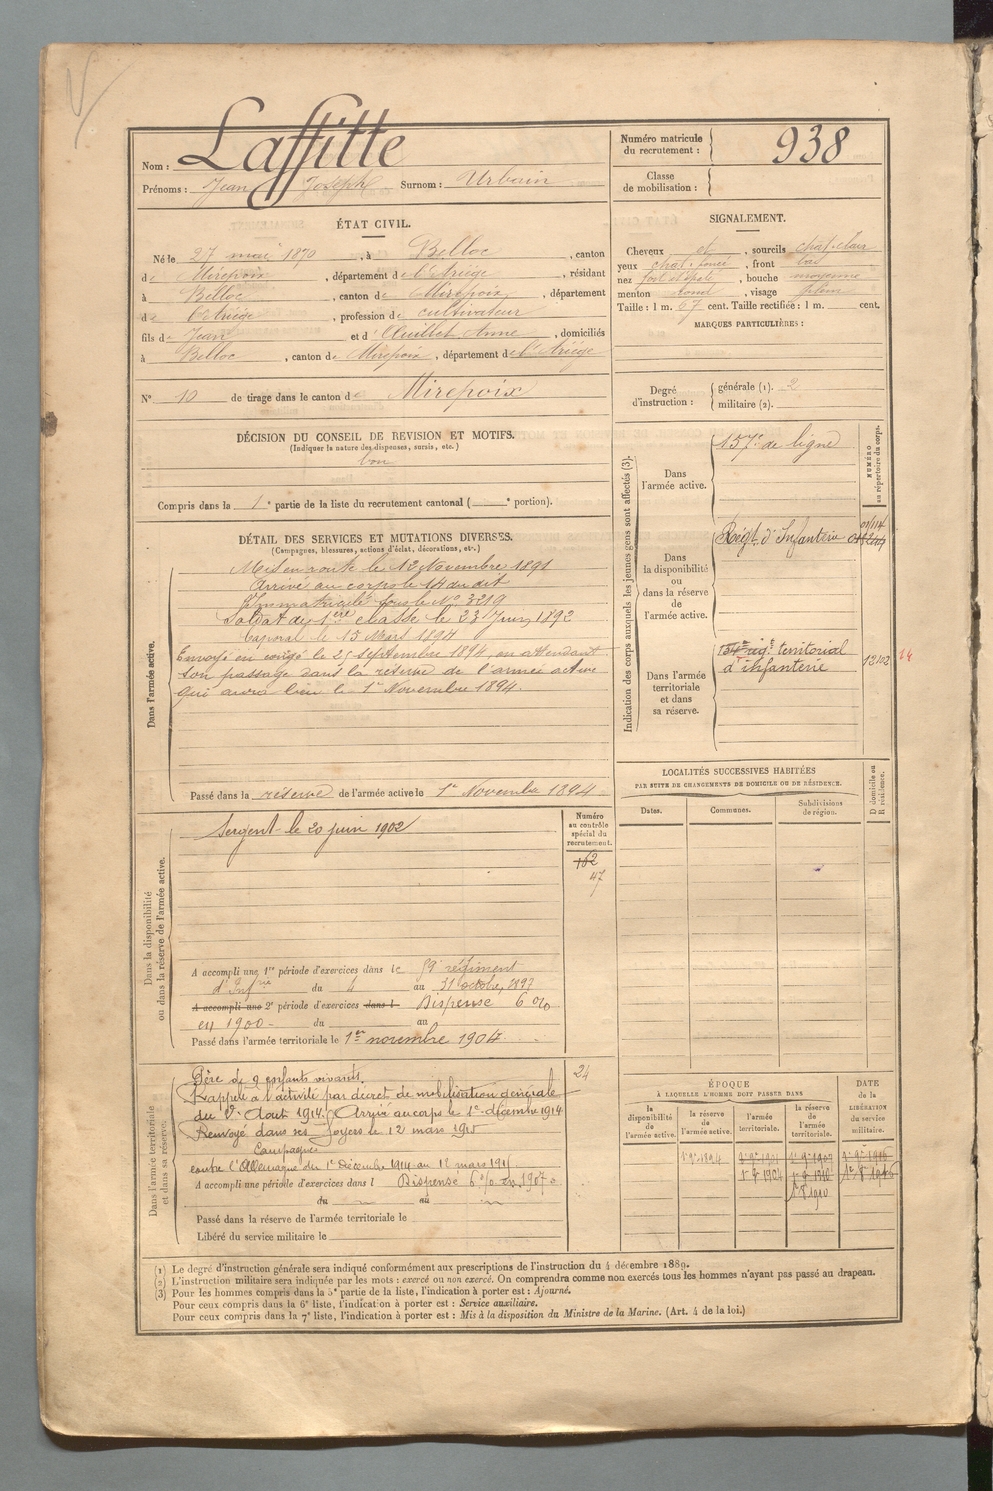 Nom : Laffitte
Prénoms : Jean Joseph Surnom : Urbain
Numéro matricule du recrutement : 938
Classe de mobilisation :
ÉTAT CIVIL.
Né le 27 mai 1870, à Belloc, canton
de Mirepoix, département de l'Ariège, résidant
à Belloc, canton de Mirepoix, département
de l'Ariège, profession de cultivateur
fils de Jean et d'Anne, domiciliés
à Belloc, canton de Mirepoix, département de l'Ariège
N° 10 de tirage dans le canton de Mirepoix
SIGNALEMENT.
Cheveux et, sourcils chat. clair
yeux chat. foncé, front bas
nez fort, bouche moyenne
menton rond, visage plein
Taille : 1 m. 67 cent. Taille rectifiée : 1 m. cent.
MARQUES PARTICULIÈRES :
Degré d'instruction :
générale (1). 2
militaire (2).
DÉCISION DU CONSEIL DE REVISION ET MOTIFS.
(Indiquer la nature des dispenses, sursis, etc.)
bon
Compris dans la 1e partie de la liste du recrutement cantonal ( e portion).
DÉTAIL DES SERVICES ET MUTATIONS DIVERSES.
(Campagnes, blessures, actions d'éclat, décorations, etc.)
Dans l'armée active.
Mis en route le 12 Novembre 1891
Arrivé au corps le 14 du dit
Immatriculé sous le N° 3219
Soldat de 1ère classe le 23 Juin 1892
Caporal le 15 Mars 1894
Envoyé en congé le 25 septembre 1894, en attendant
son passage dans la réserve de l'armée active
qui aura lieu le 1er Novembre 1894.
Passé dans la réserve de l'armée active le 1er Novembre 1894
Indication des corps auxquels les jeunes gens sont affectés (3).
NUMÉRO au répertoire du corps.
Dans l'armée active.
157e de ligne
Dans la disponibilité ou dans la réserve de l'armée active.
Régt. d'Infanterie
Dans l'armée territoriale et dans sa réserve.
134e rég. territorial
d'infanterie
12102
14
LOCALITÉS SUCCESSIVES HABITÉES
PAR SUITE DE CHANGEMENTS DE DOMICILE OU DE RÉSIDENCE.
Dates. Communes. Subdivisions de région.
D domicile ou R résidence.
Dans la disponibilité ou dans la réserve de l'armée active.
Sergent le 20 juin 1902
Numéro au contrôle spécial du recrutement.
162
47
A accompli une 1re période d'exercices dans le régiment
d'Infrie du 4 au 31 octobre
A accompli une 2e période d'exercices dans l Dispense 6 %
en 1900 - du au
Passé dans l'armée territoriale le 1er novembre 1904
Dans l'armée territoriale et dans sa réserve.
Père de 9 enfants vivants.
24
Rappelé à l'activité par décret de mobilisation générale
du 1er Août 1914. Arrivé au corps le 1er décembre 1914
Renvoyé dans ses foyers le 12 mars 1915
Campagnes
contre l'Allemagne du 1er décembre 1914 au 12 mars 1915
A accompli une période d'exercices dans l Dispense 6 % en 1907
du au
Passé dans la réserve de l'armée territoriale le
Libéré du service militaire le
ÉPOQUE
À LAQUELLE L'HOMME DOIT PASSER DANS
la disponibilité de l'armée active. la réserve de l'armée active. l'armée territoriale. la réserve de l'armée territoriale.
DATE de la LIBÉRATION du service militaire.
(1) Le degré d'instruction générale sera indiqué conformément aux prescriptions de l'instruction du 4 décembre 1889.
(2) L'instruction militaire sera indiquée par les mots : exercé ou non exercé. On comprendra comme non exercés tous les hommes n'ayant pas passé au drapeau.
(3) Pour les hommes compris dans la 5e partie de la liste, l'indication à porter est : Ajourné.
Pour ceux compris dans la 6e liste, l'indication à porter est : Service auxiliaire.
Pour ceux compris dans la 7e liste, l'indication à porter est : Mis à la disposition du Ministre de la Marine. (Art. 4 de la loi.)